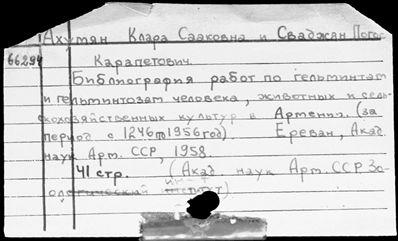 Ахумян Клара Сааковна и Сваджян Погос
66294 Карапетович.
Библиография работ по гельминтам
и гельминтозам человека, животных и сель-
скохозяйственных культур в Армении. (за
период с 1246 по 1956 год). Ереван, Акад.
наук Арм. ССР, 1958.
41 стр. (Акад. наук Арм. ССР Зо-
ологический институт)